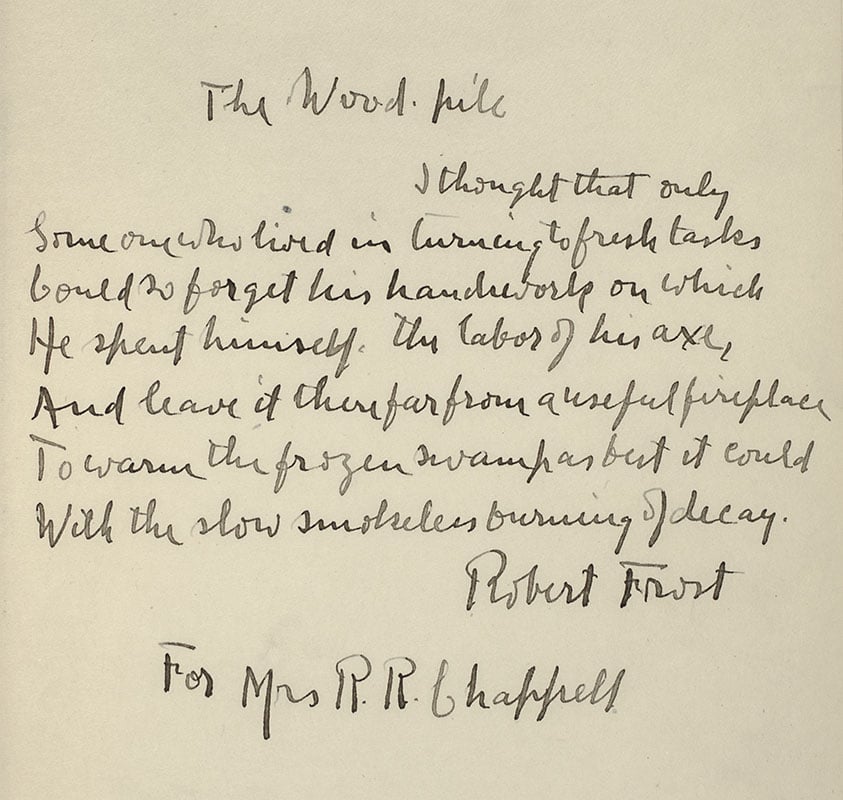 The Wood-pile
I thought that only
Some one who lived in turning to fresh tasks
Could so forget his handiwork on which
He spent himself, the labor of his axe,
And leave it there far from a useful fireplace
To warm the frozen swamp as best it could
With the slow smokeless burning of decay.
Robert Frost
For Mrs R. R. Chappell